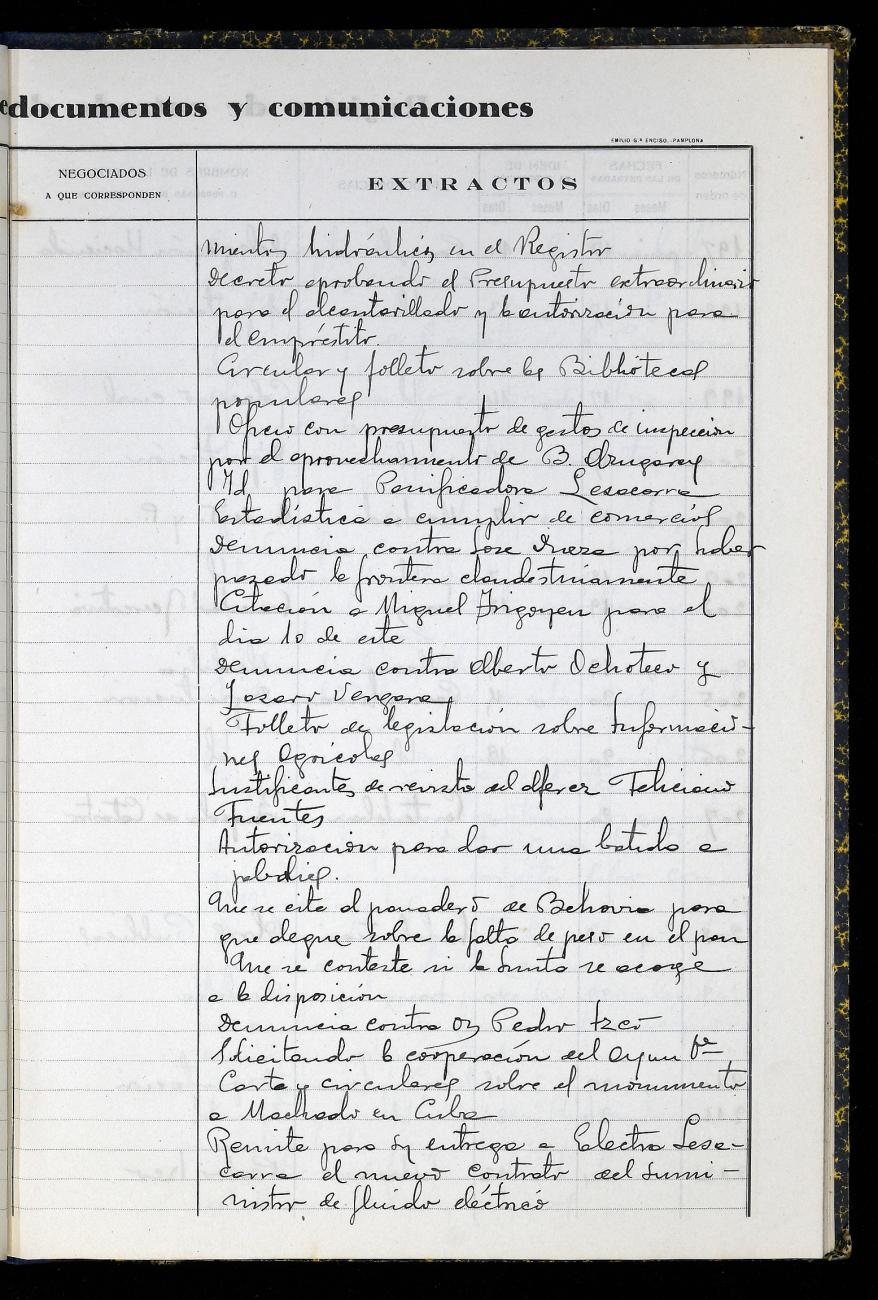 documentos y comunicaciones
EMILIO G.ª ENCISO.-PAMPLONA
NEGOCIADOS
A QUE CORRESPONDEN
EXTRACTOS
mientos hidráulicos en el Registro
Decreto aprobando el Presupuesto extraordinario
para el alcantarillado y la autorización para
el empréstito.
Circular y folleto sobre las Bibliotecas
populares
Oficio con presupuesto de gastos de inspección
por el aprovechamiento de B.
Id para Panificadora Lesacarra
Estadística a cumplir de comercios
Denuncia contra Jose por haber
pasado la frontera clandestinamente
Citación a Miguel Irigoyen para el
dia 10 de este
Denuncia contra Alberto Ochoteco y
Lazaro Vergara
Folleto de legislación sobre Informacio-
nes Agricolas
Justificantes de revista del alferez Feliciano
Fuentes
Autorizacion para dar una batida a
jabalies.
Que se cite al panadero de Behovia para
que alegue sobre la falta de peso en el pan
Que se conteste si la Junta se acoge
a la disposición
Denuncia contra Pedro
Solicitando la cooperación del Ayunto
Carta y circulares sobre el monumento
a Machado en Cuba
Remite para su entrega a Electra Lesa-
carra el nuevo contrato del sumi-
nistro de fluido eléctrico